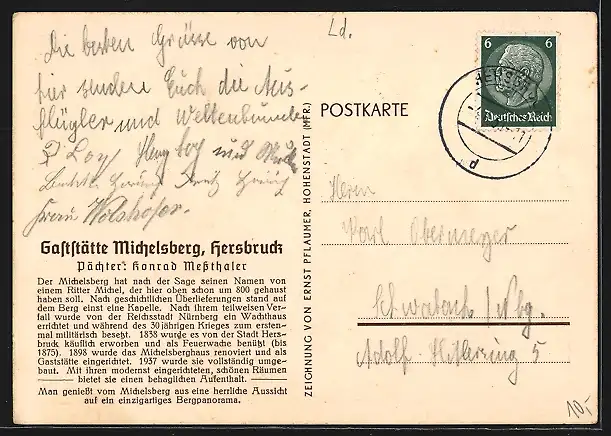 Die besten Grüsse von
hier senden Euch die Aus-
flügler und Weltenbummler
Loy Loy und
Frau Wolshofer.
Gaststätte Michelsberg, Hersbruck
Pächter: Konrad Meßthaler
Der Michelsberg hat nach der Sage seinen Namen von
einem Ritter Michel, der hier oben schon um 800 gehaust
haben soll. Nach geschichtlichen Überlieferungen stand auf
dem Berg einst eine Kapelle. Nach ihrem teilweisen Ver-
fall wurde von der Reichsstadt Nürnberg ein Wachthaus
errichtet und während des 30jährigen Krieges zum ersten-
mal militärisch besetzt. 1838 wurde es von der Stadt Hers-
bruck käuflich erworben und als Feuerwache benützt (bis
1875). 1898 wurde das Michelsberghaus renoviert und als
Gaststätte eingerichtet. 1937 wurde sie vollständig umge-
baut. Mit ihren modernst eingerichteten, schönen Räumen
bietet sie einen behaglichen Aufenthalt.
Man genießt vom Michelsberg aus eine herrliche Aussicht
auf ein einzigartiges Bergpanorama.
ZEICHNUNG VON ERNST PFLAUMER, HOHENSTADT (MFR.)
Ld.
POSTKARTE
6 6
Deutsches Reich
d
Herrn
Karl Obermeyer
Schwabach / Nbg.
Adolf-Hitlerring 5
10,-